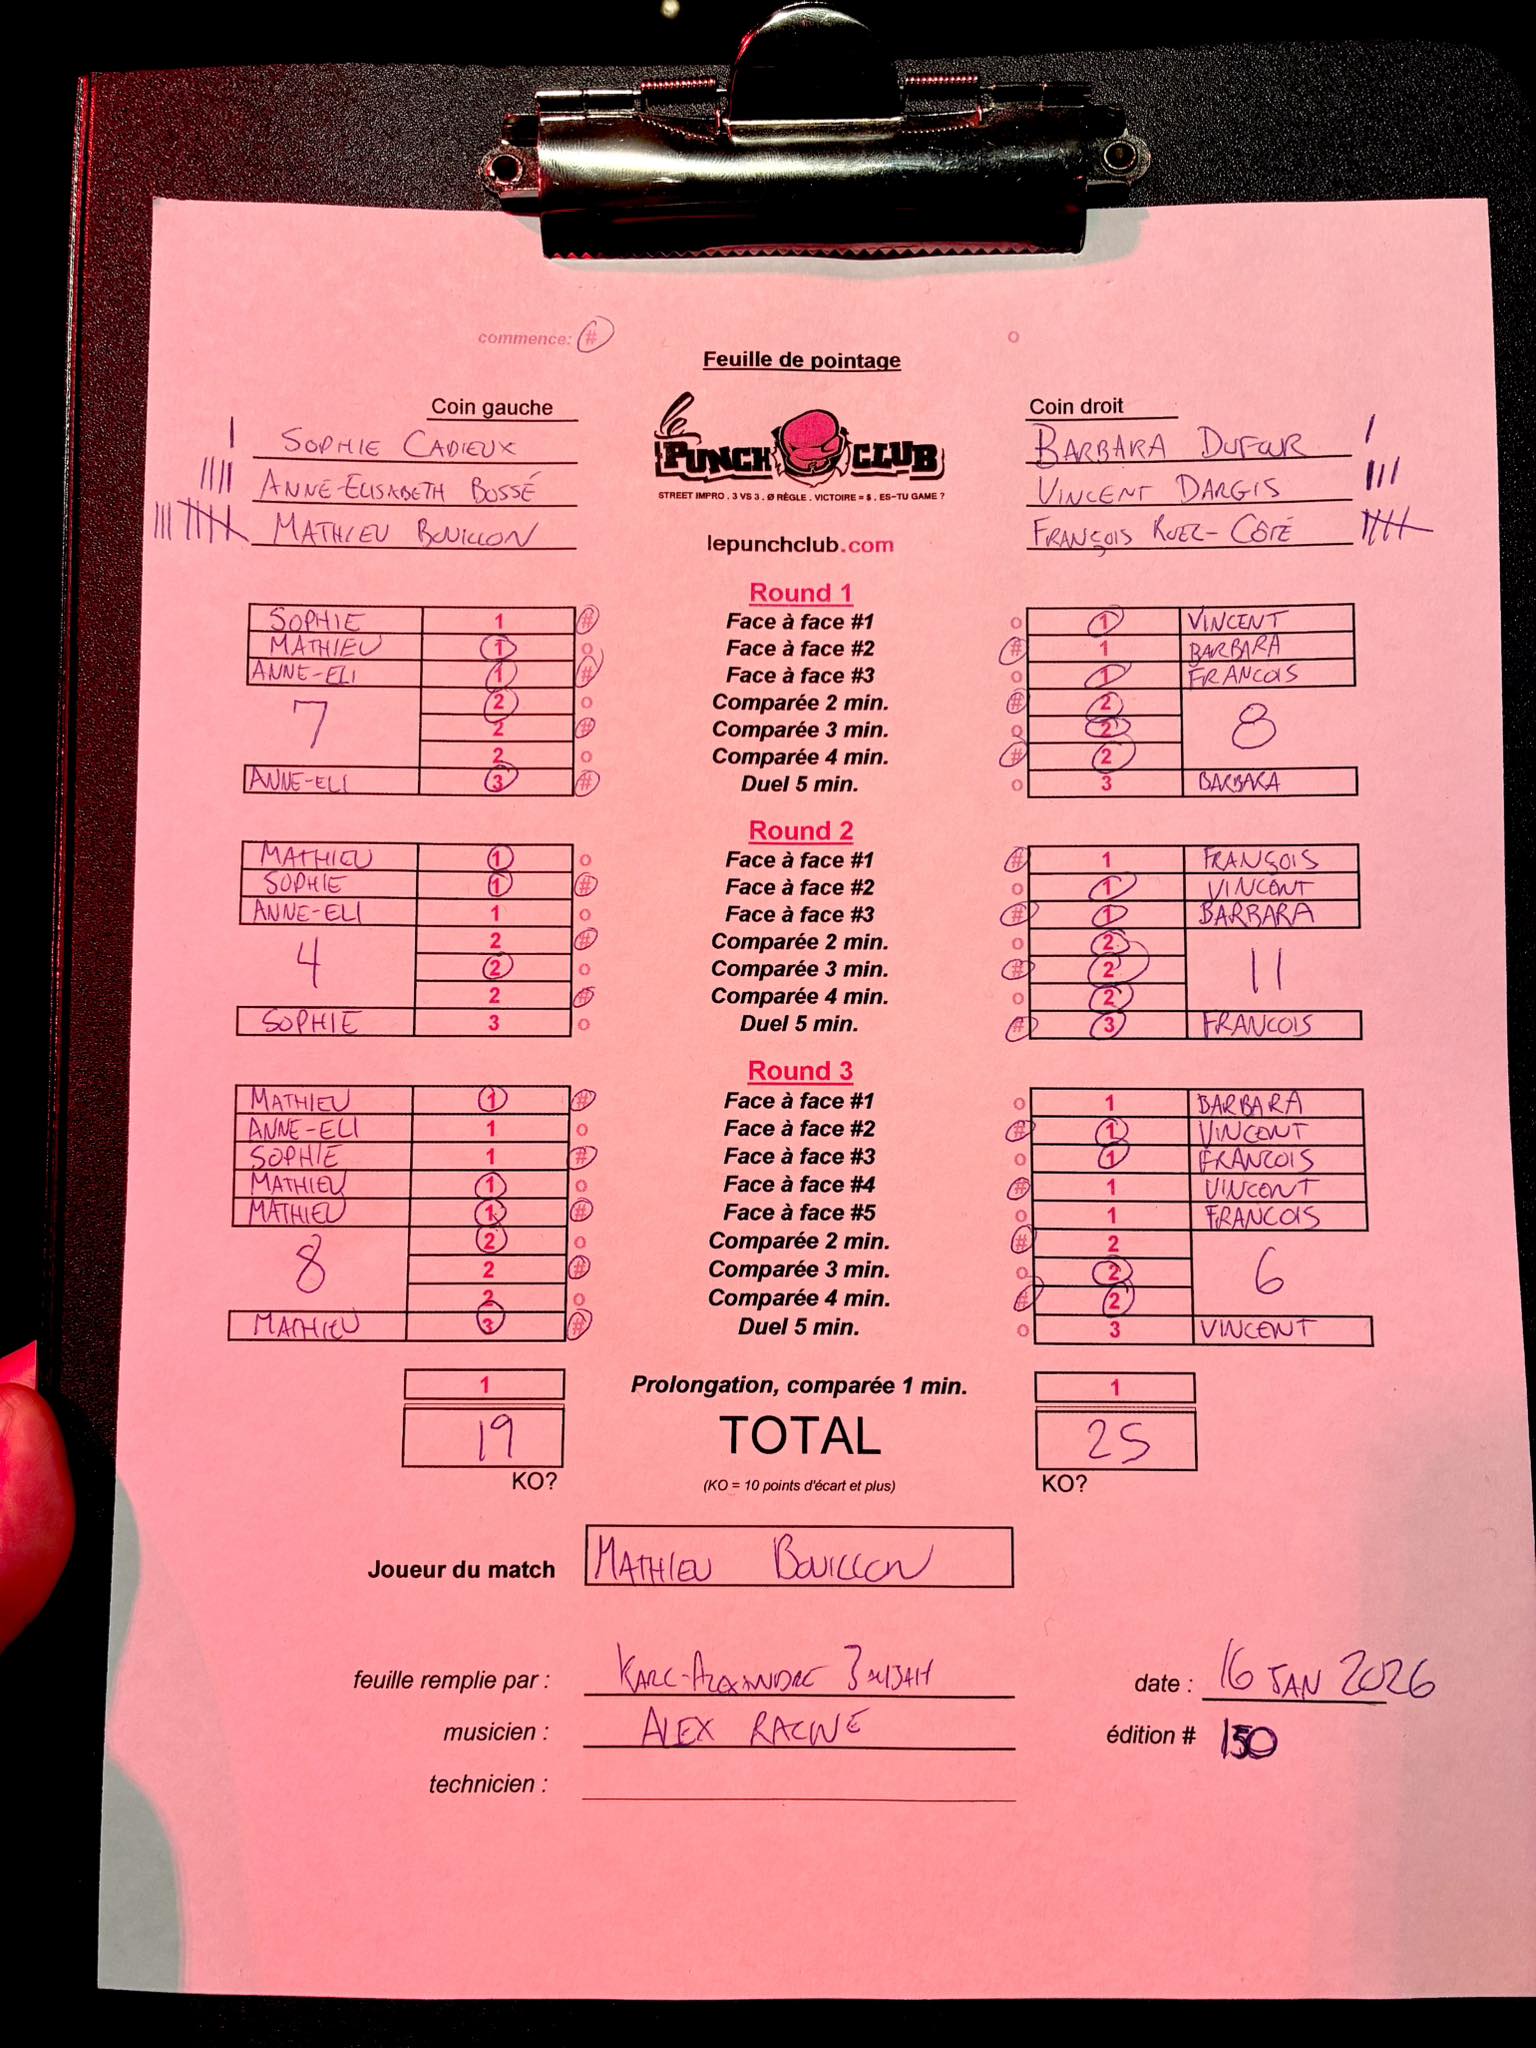 commence: # o
Feuille de pointage
Coin gauche Coin droit
SOPHIE CADIEUX BARBARA DUFOUR
ANNE-ELISABETH BOSSÉ VINCENT DARGIS
MATHIEU BOUILLON FRANÇOIS RUEL-CÔTÉ
le PUNCH CLUB
STREET IMPRO . 3 VS 3 . Ø RÈGLE . VICTOIRE = $ . ES-TU GAME ?
lepunchclub.com
Round 1
SOPHIE 1 # Face à face #1 o 1 VINCENT
MATHIEU 1 o Face à face #2 # 1 BARBARA
ANNE-ELI 1 # Face à face #3 o 1 FRANCOIS
2 o Comparée 2 min. # 2
7 2 # Comparée 3 min. o 2 8
2 o Comparée 4 min. # 2
ANNE-ELI 3 # Duel 5 min. o 3 BARBARA
Round 2
MATHIEU 1 o Face à face #1 # 1 FRANÇOIS
SOPHIE 1 # Face à face #2 o 1 VINCENT
ANNE-ELI 1 o Face à face #3 # 1 BARBARA
2 # Comparée 2 min. o 2
4 2 o Comparée 3 min. # 2 11
2 # Comparée 4 min. o 2
SOPHIE 3 o Duel 5 min. # 3 FRANCOIS
Round 3
MATHIEU 1 # Face à face #1 o 1 BARBARA
ANNE-ELI 1 o Face à face #2 # 1 VINCENT
SOPHIE 1 # Face à face #3 o 1 FRANCOIS
MATHIEU 1 o Face à face #4 # 1 VINCENT
MATHIEU 1 # Face à face #5 o 1 FRANCOIS
2 o Comparée 2 min. # 2
8 2 # Comparée 3 min. o 2 6
2 o Comparée 4 min. # 2
MATHIEU 3 # Duel 5 min. o 3 VINCENT
1 Prolongation, comparée 1 min. 1
19 TOTAL 25
KO? (KO = 10 points d'écart et plus) KO?
Joueur du match MATHIEU BOUILLON
feuille remplie par : KARL-ALEXANDRE date : 16 JAN 2026
musicien : ALEX RACINE édition # 150
technicien :